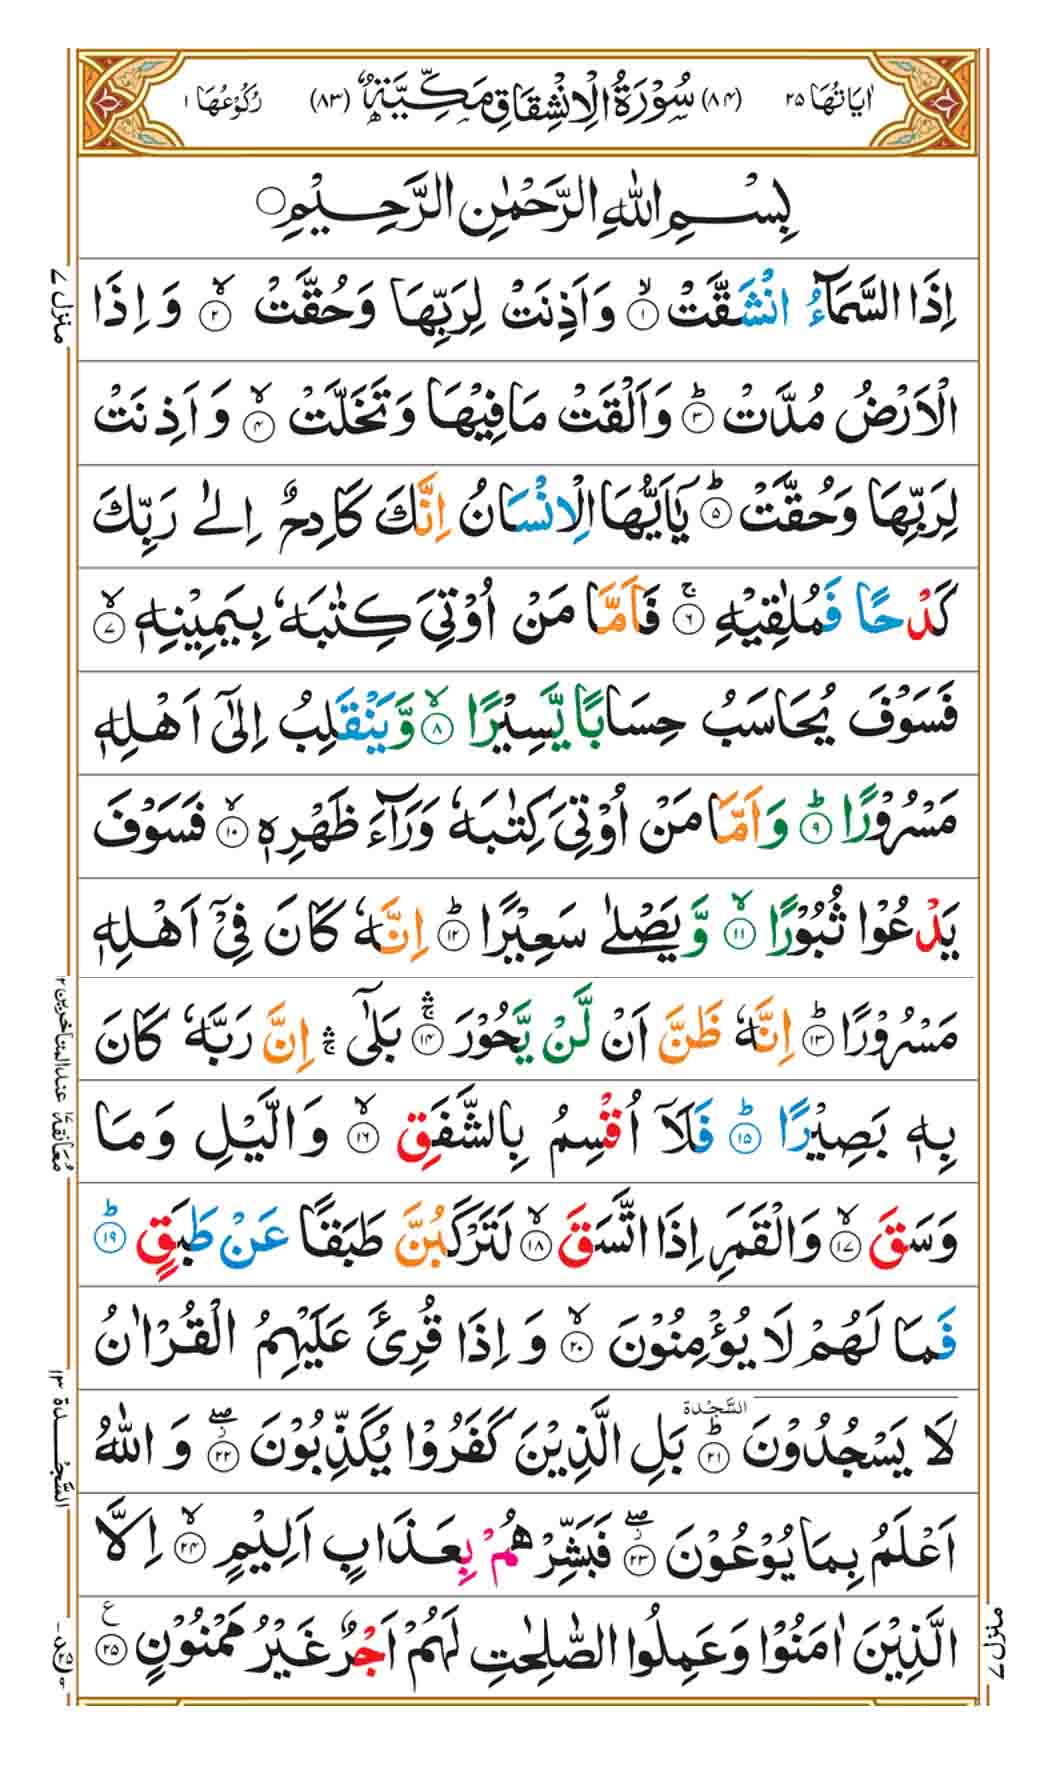 اٰيَاتُهَا ٢٥ (٨٤) سُوْرَةُ الْاِنْشِقَاقِ مَكِّيَّةٌ (٨٣) رُكُوْعُهَا ١
بِسْمِ اللّٰهِ الرَّحْمٰنِ الرَّحِيْمِ
اِذَا السَّمَآءُ انْشَقَّتْ ۙ‏﴿۱﴾ وَاَذِنَتْ لِرَبِّهَا وَحُقَّتْ ۙ‏﴿۲﴾ وَ اِذَا
الْاَرْضُ مُدَّتْ ؕ‏﴿۳﴾ وَاَلْقَتْ مَا فِيْهَا وَتَخَلَّتْ ۙ‏﴿۴﴾ وَ اَذِنَتْ
لِرَبِّهَا وَحُقَّتْ ؕ‏﴿۵﴾ يٰۤاَيُّهَا الْاِنْسَانُ اِنَّكَ كَادِحٌ اِلٰى رَبِّكَ
كَدْحًا فَمُلٰقِيْهِ ۚ‏﴿۶﴾ فَاَمَّا مَنْ اُوْتِىَ كِتٰبَهٗ بِيَمِيْنِهٖ ۙ‏﴿۷﴾
فَسَوْفَ يُحَاسَبُ حِسَابًا يَّسِيْرًا ۙ‏﴿۸﴾ وَّيَنْقَلِبُ اِلٰٓى اَهْلِهٖ
مَسْرُوْرًا ؕ‏﴿۹﴾ وَاَمَّا مَنْ اُوْتِىَ كِتٰبَهٗ وَرَآءَ ظَهْرِهٖ ۙ‏﴿۱۰﴾ فَسَوْفَ
يَدْعُوْا ثُبُوْرًا ۙ‏﴿۱۱﴾ وَّيَصْلٰى سَعِيْرًا ؕ‏﴿۱۲﴾ اِنَّهٗ كَانَ فِىْۤ اَهْلِهٖ
مَسْرُوْرًا ؕ‏﴿۱۳﴾ اِنَّهٗ ظَنَّ اَنْ لَّنْ يَّحُوْرَ ۛۚ‏﴿۱۴﴾ بَلٰٓى ۛۚ اِنَّ رَبَّهٗ كَانَ
بِهٖ بَصِيْرًا ؕ‏﴿۱۵﴾ فَلَاۤ اُقْسِمُ بِالشَّفَقِ ۙ‏﴿۱۶﴾ وَالَّيْلِ وَمَا
وَسَقَ ۙ‏﴿۱۷﴾ وَالْقَمَرِ اِذَا اتَّسَقَ ۙ‏﴿۱۸﴾ لَتَرْكَبُنَّ طَبَقًا عَنْ طَبَقٍ ؕ‏﴿۱۹﴾
فَمَا لَهُمْ لَا يُؤْمِنُوْنَ ۙ‏﴿۲۰﴾ وَ اِذَا قُرِئَ عَلَيْهِمُ الْقُرْاٰنُ
لَا يَسْجُدُوْنَ ؕ‏﴿۲۱﴾ السَّجْدَة بَلِ الَّذِيْنَ كَفَرُوْا يُكَذِّبُوْنَ ۖ‏﴿۲۲﴾ وَ اللّٰهُ
اَعْلَمُ بِمَا يُوْعُوْنَ ۖ‏﴿۲۳﴾ فَبَشِّرْهُمْ بِعَذَابٍ اَلِيْمٍ ۙ‏﴿۲۴﴾ اِلَّا
الَّذِيْنَ اٰمَنُوْا وَعَمِلُوا الصّٰلِحٰتِ لَهُمْ اَجْرٌ غَيْرُ مَمْنُوْنٍ ﴿۲۵﴾ ع
منزل ٧
معانقة عند المتاخرين ١٢
السَّجْدَة ١٣
منزل ٧